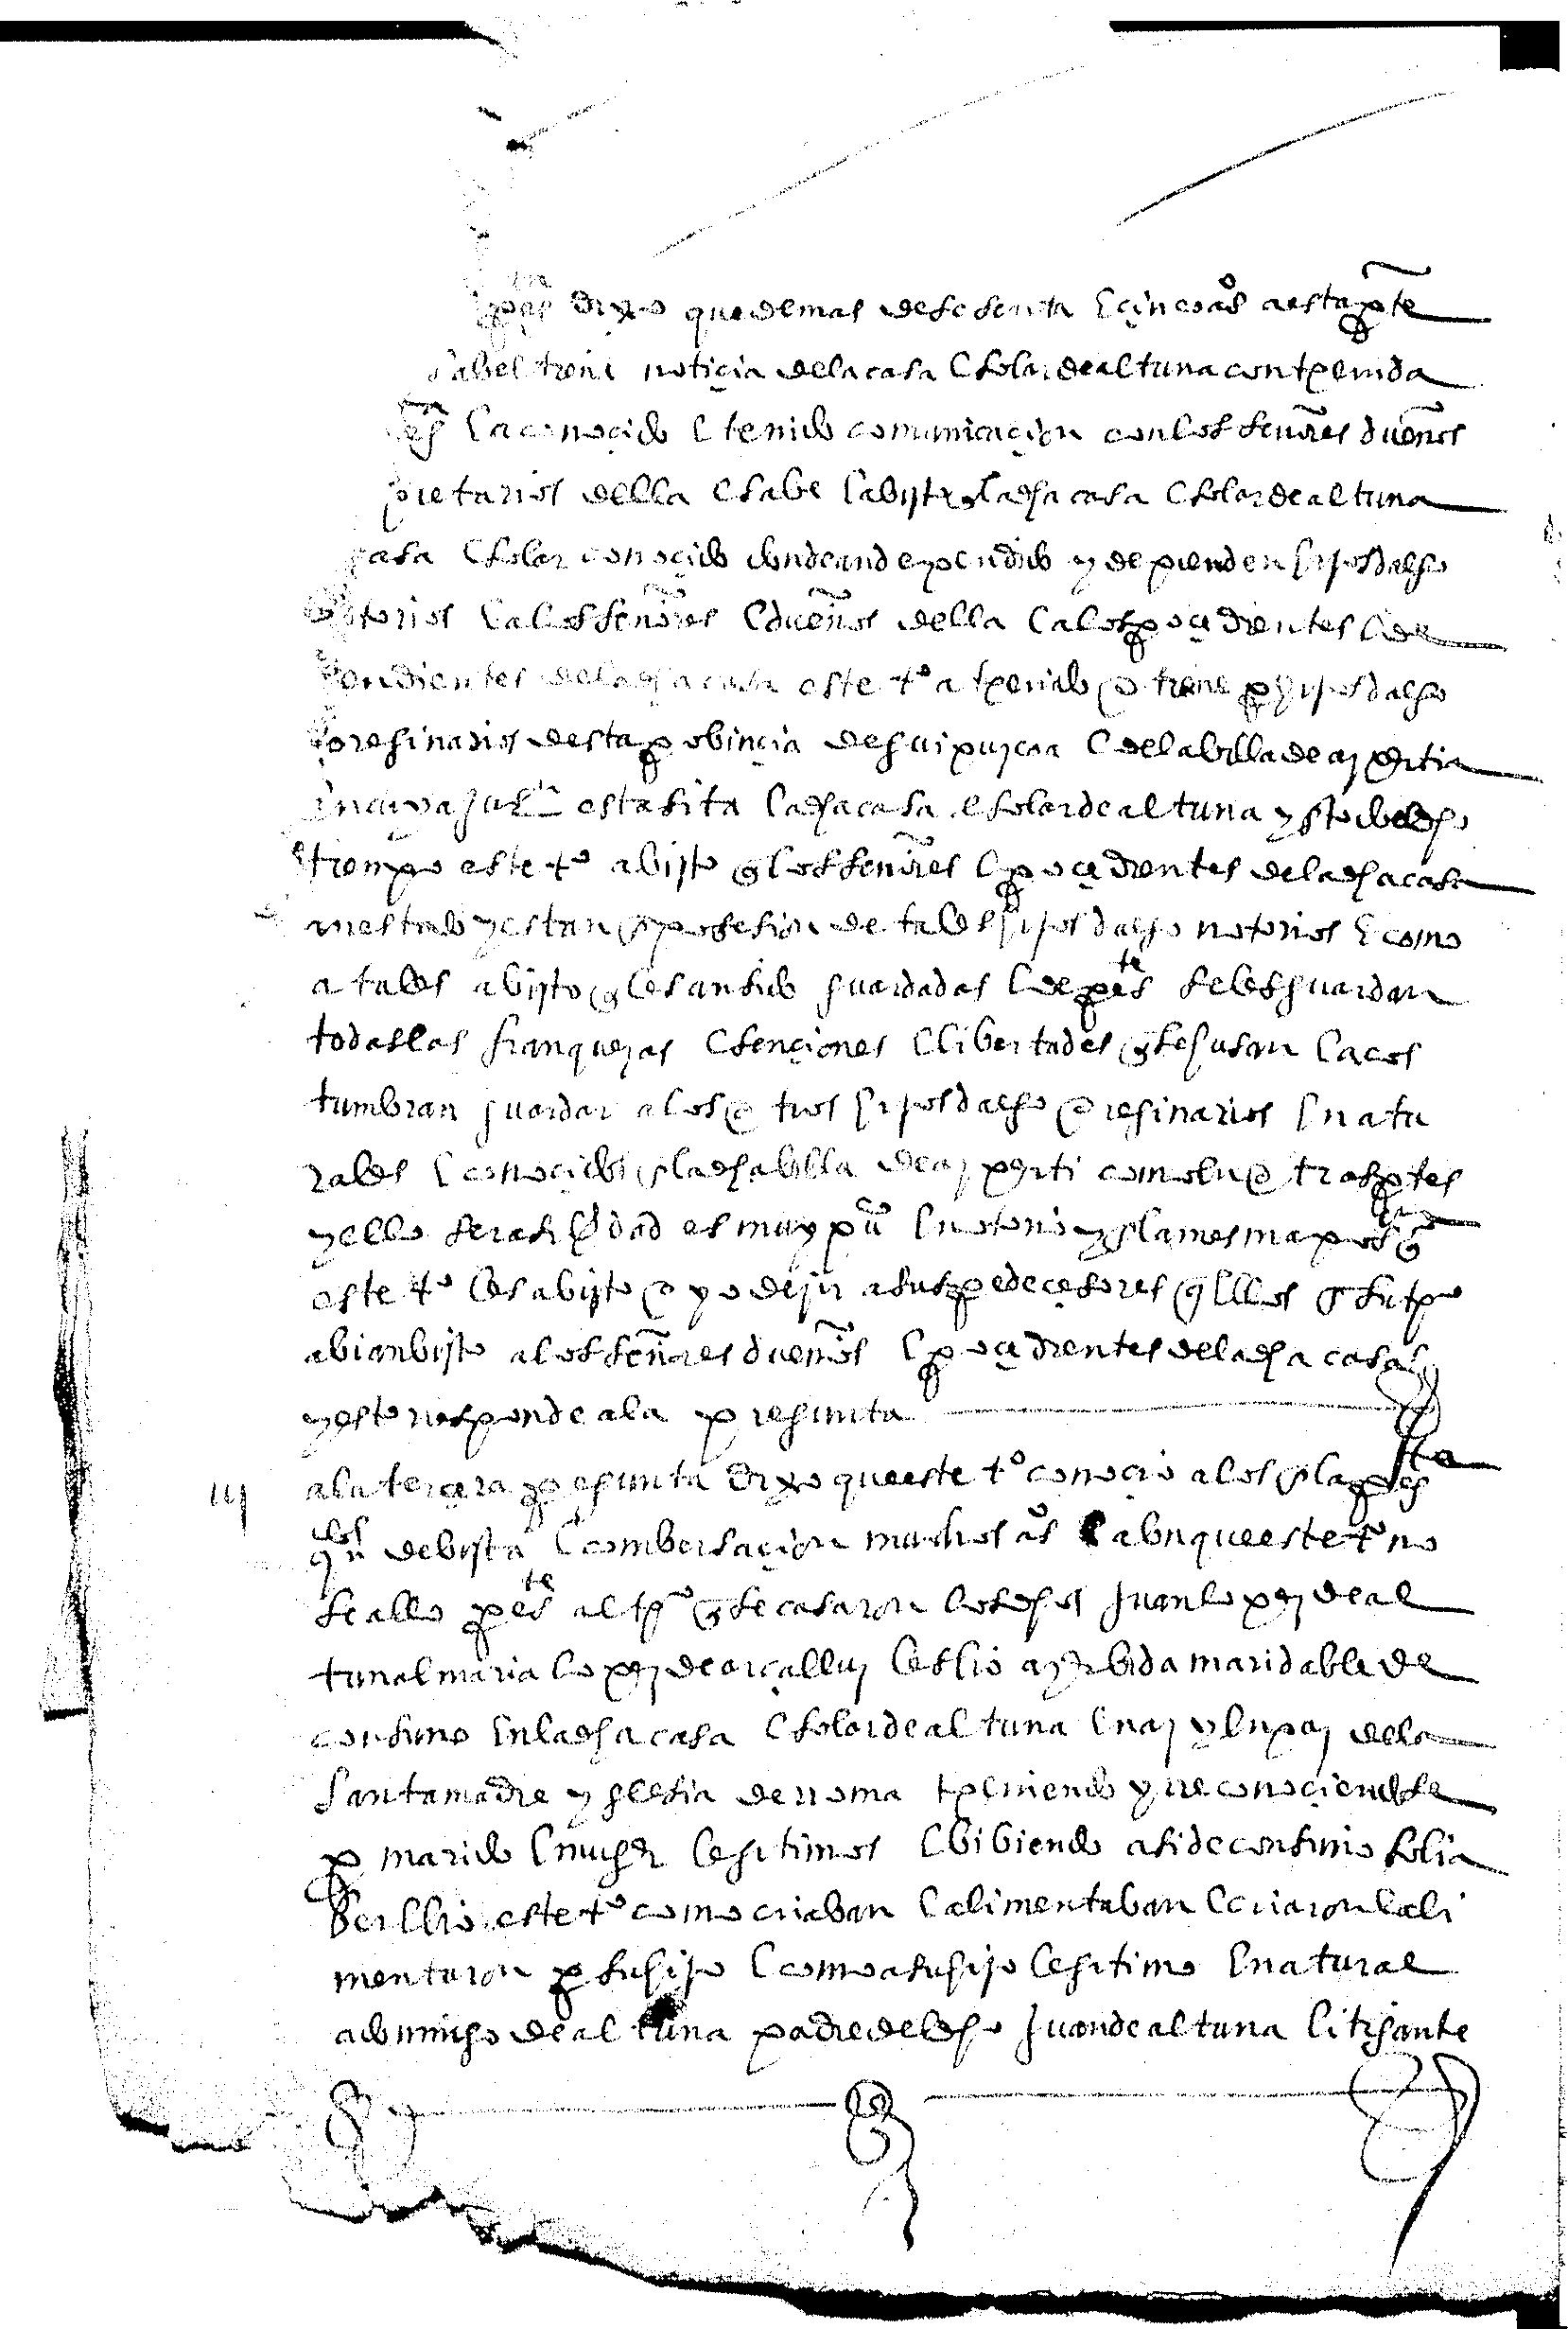 dixo que demas de sesenta E çinco aºs a esta pte
sabe l tiene notiçia de la casa E solar de altuna contxenida
E a conoçido E tenido comunicaçion con los señores dueños
pietarios della E sabe E a bisto q la dha casa E solar de altuna
casa E solar conoçido donde an dependido y dependen hijosdalgo
notorios E a los señores E dueños della E a los proçedientes E de
pendientes de la dha casa este tº a txenido E tiene por hijosdalgo
originarios desta probinçia de guipuzcoa E de la billa de azpeitia
en cuya jurⁿ esta sita la dha casa E solar de altuna y todo el dho
tiempo este tº a bisto q los señores E proçedientes de la dha casa
an estado y estan en posesion de tales hijosdalgo notorios E como
a tales a bisto q les an sido guardadas E de preste se les guardan
todas las franquezas Esençiones E libertades q se usan E acos
tumbran guardar a los otros hijosdalgo originarios E natu
rales E conoçidos en la dha billa de azpeiti como en otras ptes
y ello ser asi berdad es muy puº E notorio y en la mesma posⁿ q
este tº les a bisto oyo dezir a sus predeçesores q Ellos en su tpo
abian bisto a los señores dueños E proçedientes de la dha casa
y esto responde a la pregunta
iij a la terçera pregunta dixo que este tº conoçio a los en la preste
qn dos de bista E combersaçion muchos aºs E abnque este tº no
se allo preste al tpº q se casaron los dhos juan lopez de al
tuna E maria lopez de orcalluz les bio azer bida maridable de
consuno en la dha casa E solar de altuna En az y en paz de la
santa madre yglesia de rroma txeniendo y rreconoçiendose
por marido E muger legitimos E bibiendo asi de consuno solia
ber E bio este tº como criaban E alimentaban E criaron E ali
mentaron por su hijo E como a su hijo legitimo E natural
a domingo de altuna padre del dho juan de altuna litigante